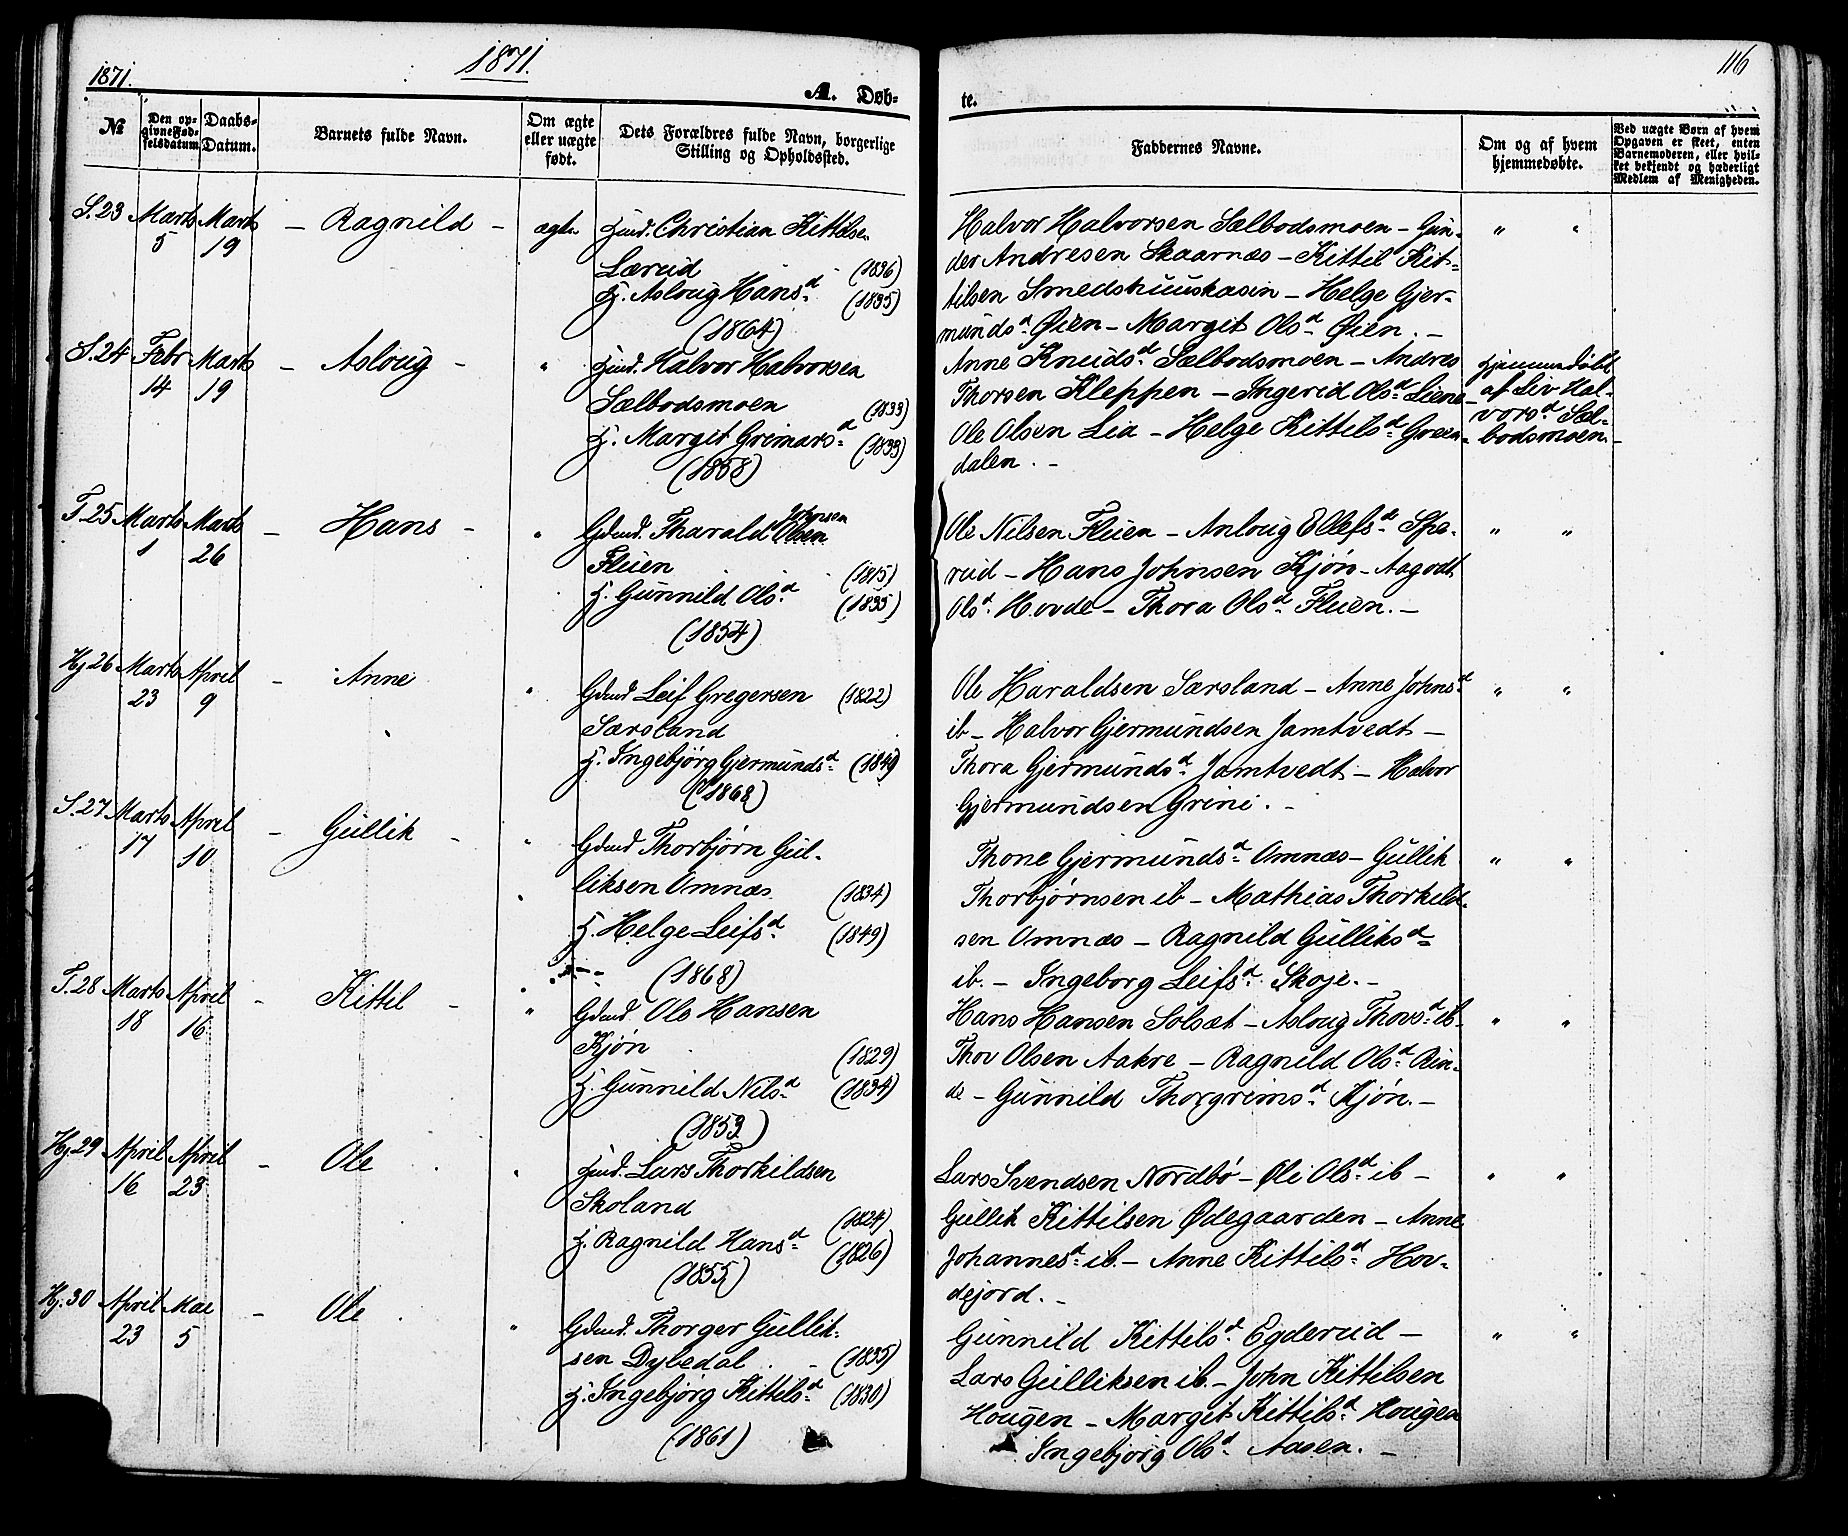 1871.
1871.
116
A. Døb-
te.
№
Den op-
givne Fød-
selsdatum
Daabs-
Datum.
Barnets fulde Navn.
Om ægte
eller uægte
født.
Dets Forældres fulde Navn, borgerlige
Stilling og Opholdssted.
Faddernes Navne.
Om og af hvem
hjemmedøbte.
Ved uægte Børn af hvem
Opgaven er skeet, enten
Barnemoderen, eller hvil-
ket bekjendt og hæderligt
Medlem af Menigheden.
S. 23 Marts 5 Marts 19 – Ragnild – ægte
Hmd. Christian Kittilse-
Læreid (1836)
H. Asloug Hansd. (1835)
(1864)
Halvor Halvorsen Sælbodsmoen – Gun-
der Andresen Skaarnæs – Kittil Kit-
tilsen Smedshuuskaasin – Helge Gjer-
mundsd. Øien – Margit Olsd. Øien. –
" "
S. 24 Febr 14 Marts 19 – Asloug – "
Hmd. Halvor Halvorsen
Sælbodsmoen (1833)
H. Margit Grimarsd. (1833)
(1858)
Anne Knudsd. Sælbodsmoen – Andres
Thorsen Kleppen – Ingerid Olsd. Liene –
Ole Olsen Lia – Helge Kittilsd. Green-
dalen. –
Hjemmedøbt
af Liv Hal-
vorsd. Sæl-
bodsmoen. –
T. 25 Marts 1 Marts 26 – Hans – "
Johnsen
Gdmd. Tharald Olsen
Fluen (1815)
H. Gunnild Olsd. (1835)
(1854)
Ole Nilsen Fluen – Anloug Ellefsd. Spe-
reid – Hans Johnsen Kjøn – Aagodt
Olsd. Hovde – Thora Olsd. Fluen. –
" "
Hj. 26 Marts 23 April 9 – Anne "
Gdmd Leif Gregersen (1822)
Særsland
H. Ingebjørg Gjermundsd. (1849)
(1868)
Ole Haraldsen Særsland – Anne Johnsd.
ib – Halvor Gjermundsen Jamtvedt –
Thora Gjermundsd. Jamtvedt – Halvor
Gjermundsen Grini. –
" "
S. 27 Marts 17 April 10 – Gullik – "
Gdmd Thorbjørn Gul-
liksen Omnæs (1834)
H. Helge Leifsd. (1849)
(1868)
Thone Gjermundsd. Omnæs – Gullik
Thorbjørnsen ib – Mathias Thorkild-
sen Omnæs – Ragnild Gulliksd.
ib. – Ingeborg Leifsd. Skoje. –
" "
T. 28 Marts 18 April 16 – Kittil – "
Gdmd Ole Hansen
Kjøn (1829)
H. Gunnild Nilsd. (1834)
(1853)
Hans Hansen Solsæt – Asloug Thovsd. ib –
Thov Olsen Aakre – Ragnild Olsd. Rin-
de – Gunnild Thorgrimsd. Kjøn. –
" "
Hj. 29 April 16 April 23 – Ole "
Hmd. Lars Thorkildsen
Skoland (1824)
H. Ragnild Hansd. (1826)
(1855)
Lars Svendsen Nordbø – Øli Olsd. ib –
Gullik Kittilsen Ødegaarden – Anne
Johannesd. ib. – Anne Kittilsd. Hov-
dejord. –
" "
Hj. 30 April 23 Mai 5 – Ole "
Gdmd. Thorger Gullik-
sen Dybedal (1835)
H. Ingebjørg Kittilsd. (1830)
(1861)
Gunnild Kittilsd. Egdereid –
Lars Gulliksen ib. – John Kittilsen
Hougen – Margit Kittilsd. Hougen
Ingebjørg Olsd. Aasen. –
" "